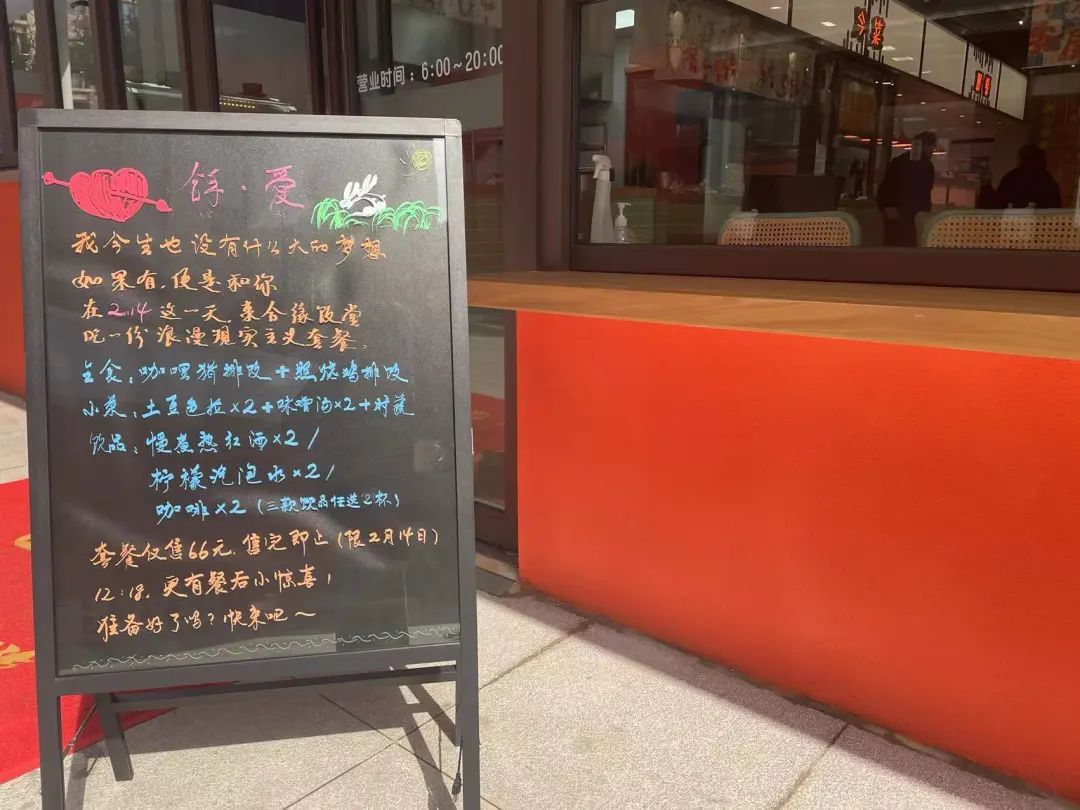 营业时间：6:00～20:00
今菜
·爱
我今生也没有什么大的梦想
如果有，便是和你
在2.14这一天，来合缘饭堂
吃一份浪漫现实主义套餐。
主食：咖喱猪排饭＋照烧鸡排饭
小菜：土豆色拉×2＋味噌汤×2＋时蔬
饮品：慢煮热红酒×2/
柠檬汽泡水×2/
咖啡×2（三款饮品任选2杯）
套餐仅售66元，售完即止（限2月14日）
12:18，更有餐后小惊喜！
准备好了吗？快来吧～